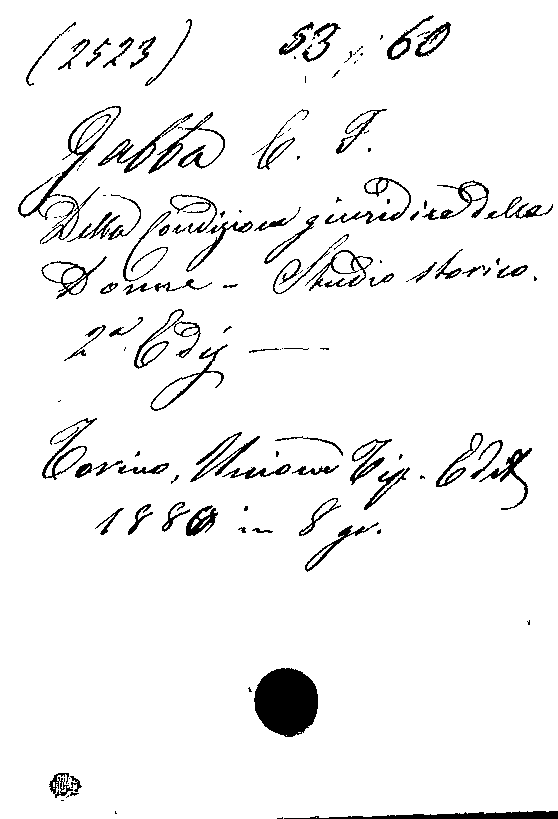 (2523) 53 60
Gabba C. F.
Della Condizione giuridica delle
Donne - Studio storico.
2a Ediz —
Torino, Unione Tip. Edit
1880 in 8 gr.